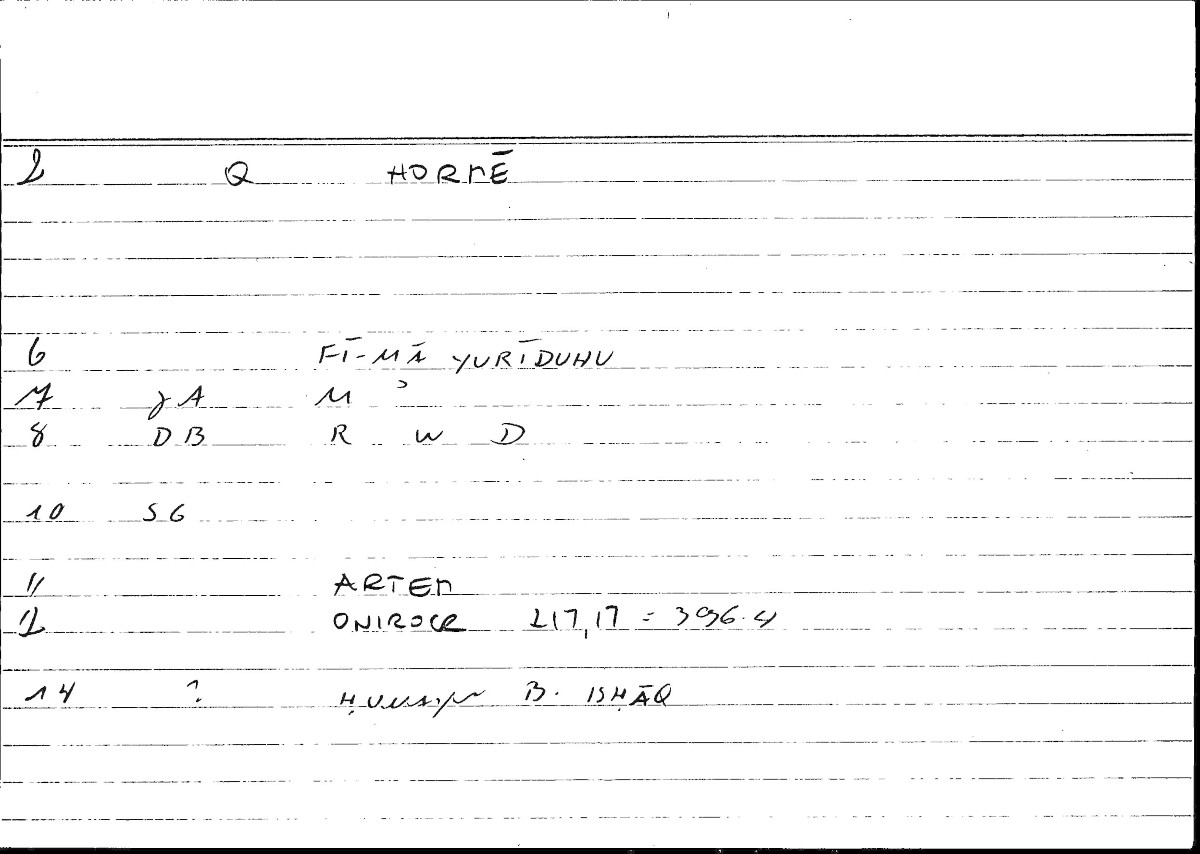 2 Q HORMĒ
6 FĪ-MĀ YURĪDUHU
7 γA M ʾ
8 DB R W D
10 SG
11 ARTEM
12 ONIROCR 217,17 = 396.4
14 ? ḤUNAYN B. ISḤĀQ